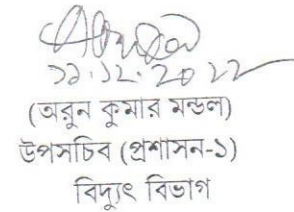 ১১.১২.২০২২
(অরুন কুমার মন্ডল)
উপসচিব (প্রশাসন-১)
বিদ্যুৎ বিভাগ